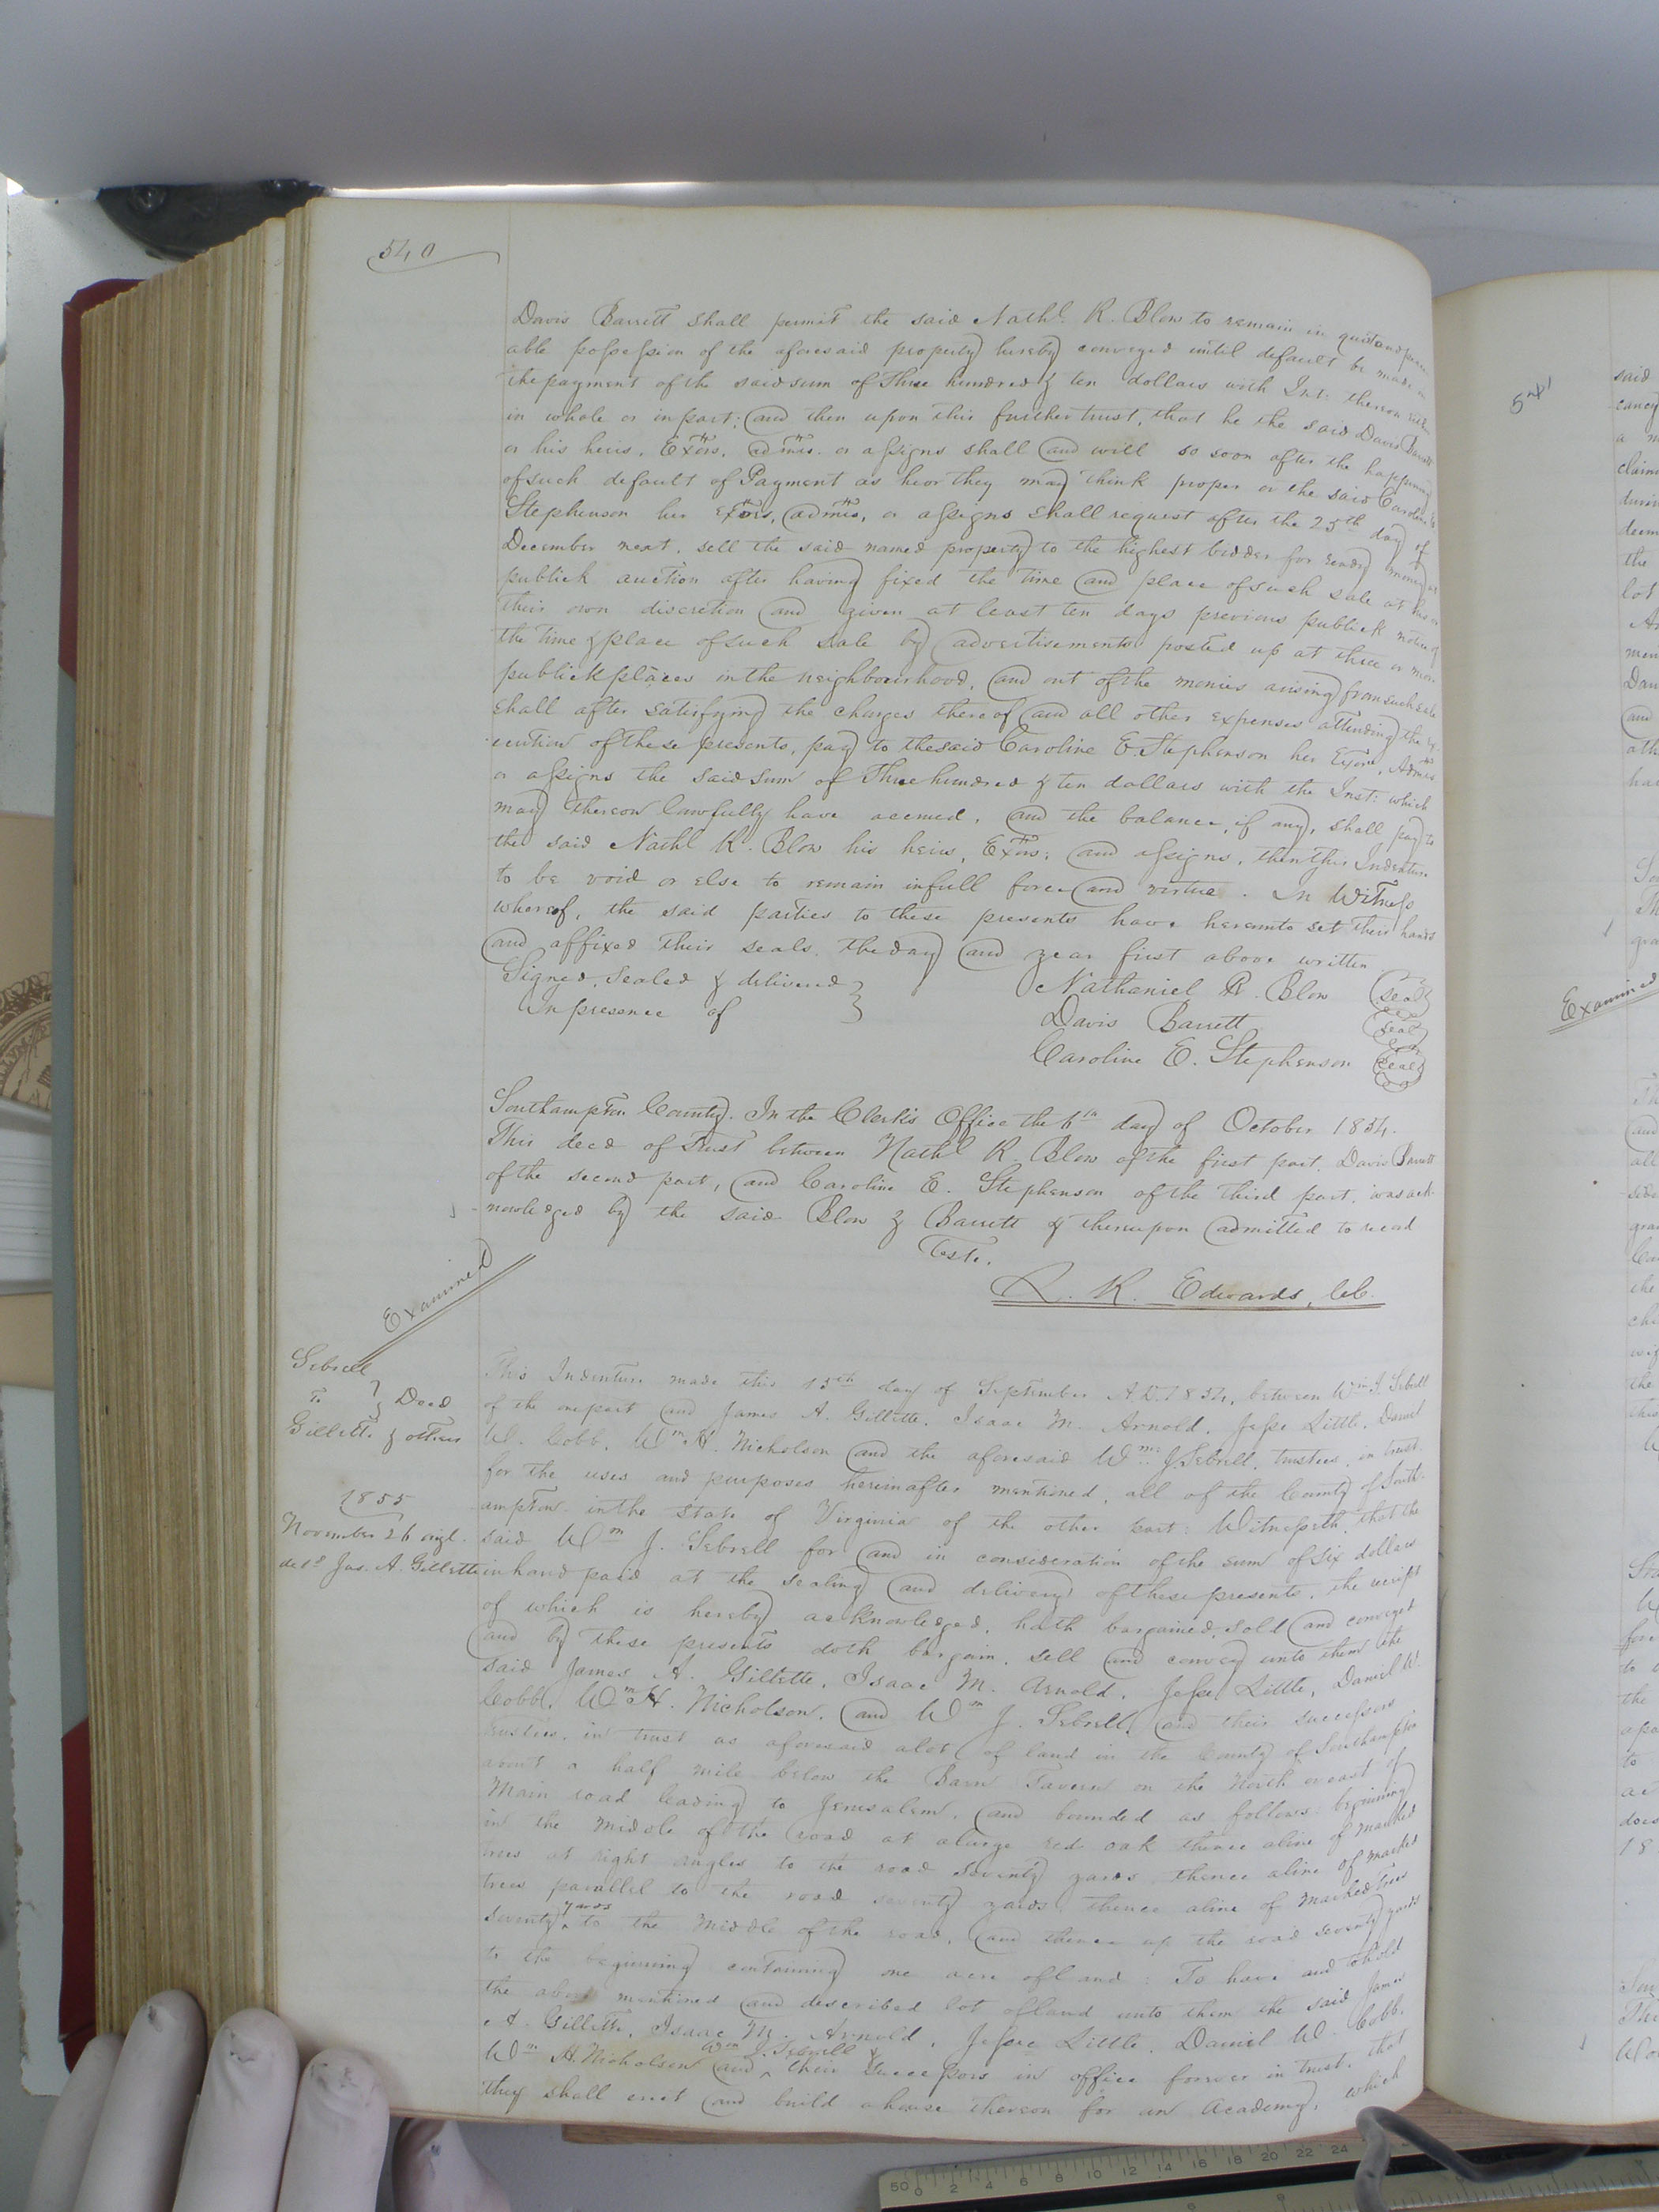 540
Davis Barrett shall permit the said Nathl. R. Blow to remain in quiet and peace
able possession of the aforesaid property hereby conveyed until default be made in
the payment of the said sum of Three hundred & ten dollars with Int: thereon either
in whole or in part; and then upon this further trust, that he the said Davis Barrett
or his heirs, Exors, admrs. or assigns shall and will so soon after the happening
of such default of Payment as he or they may think proper or the said Caroline E
Stephenson her Exors, admrs, or assigns shall request after the 25th day of
December next, sell the said named property to the highest bidder for ready money at
publick auction after having fixed the time and place of such sale at his or
their own discretion and given at least ten days previous publick notice of
the time & place of such sale by advertisements posted up at three or more
publick places in the neighbourhood, and out of the monies arising from such sale
shall after satisfying the charges thereof and all other expenses attending the ex-
ecution of these presents, pay to the said Caroline E Stephenson her Exors, Admrs
or assigns the said sum of Three hundred & ten dollars with the Inst: which
may thereon lawfully have accrued, and the balance, if any, shall pay to
the said Nathl R. Blow his heirs, Exors; and assigns, then this Indenture
to be void or else to remain in full force and virtue. In Witness
whereof, the said parties to these presents have hereunto set their hands
and affixed their seals, the day and year first above written
Signed, Sealed & delivered
In presence of
Nathaniel R. Blow (seal)
Davis Barrett (seal)
Caroline E. Stephenson (seal)
Southampton County. In the Clerk's Office the 6th day of October 1854.
This deed of Trust between Nathl R. Blow of the first part, Davis Barrett
of the second part, and Caroline E. Stephenson of the third part, was ack-
nowledged by the said Blow & Barrett & thereupon admitted to record
Teste.
L. R. Edwards, Clk.
Examined
Sebrell
To } Deed
Gillette & others
1855
November 26 origl.
deld Jas. A. Gillette
This Indenture made this 13th day of September A.D. 1854, between Wm J. Sebrell
of the one part and James A. Gillette, Isaac M. Arnold, Jesse Little, Daniel
W. Cobb, Wm H. Nicholson and the aforesaid Wm J. Sebrell, trustees, in trust
for the uses and purposes hereinafter mentioned, all of the County of South-
ampton in the State of Virginia of the other part: Witnesseth, that the
said Wm J. Sebrell for and in consideration of the sum of six dollars
in hand paid at the sealing and delivery of these presents, the receipt
of which is hereby acknowledged, hath bargained, sold and conveyed
and by these presents doth bargain, sell and convey unto them the
said James A. Gillette, Isaac M. Arnold, Jesse Little, Daniel W.
Cobb, Wm H. Nicholson, and Wm J. Sebrell, and their successors
trustees, in trust as aforesaid a lot of land in the County of Southampton
about a half mile below the Barn Tavern on the North or east of
Main road leading to Jerusalem, and bounded as follows: beginning
in the middle of the road at a large red oak thence a line of marked
trees at right angles to the road seventy yards, thence a line of marked
trees parallel to the road seventy yards, thence a line of marked trees
seventy yards to the middle of the road, and thence up the road seventy yards
to the beginning containing one acre of land: To have and to hold
the above mentioned and described lot of land unto them the said James
A. Gillette, Isaac M. Arnold, Jesse Little, Daniel W. Cobb,
Wm H. Nicholson and Wm J. Sebrell & their successors in office forever in trust, that
they shall erect and build a house thereon for an Academy, which
Examined